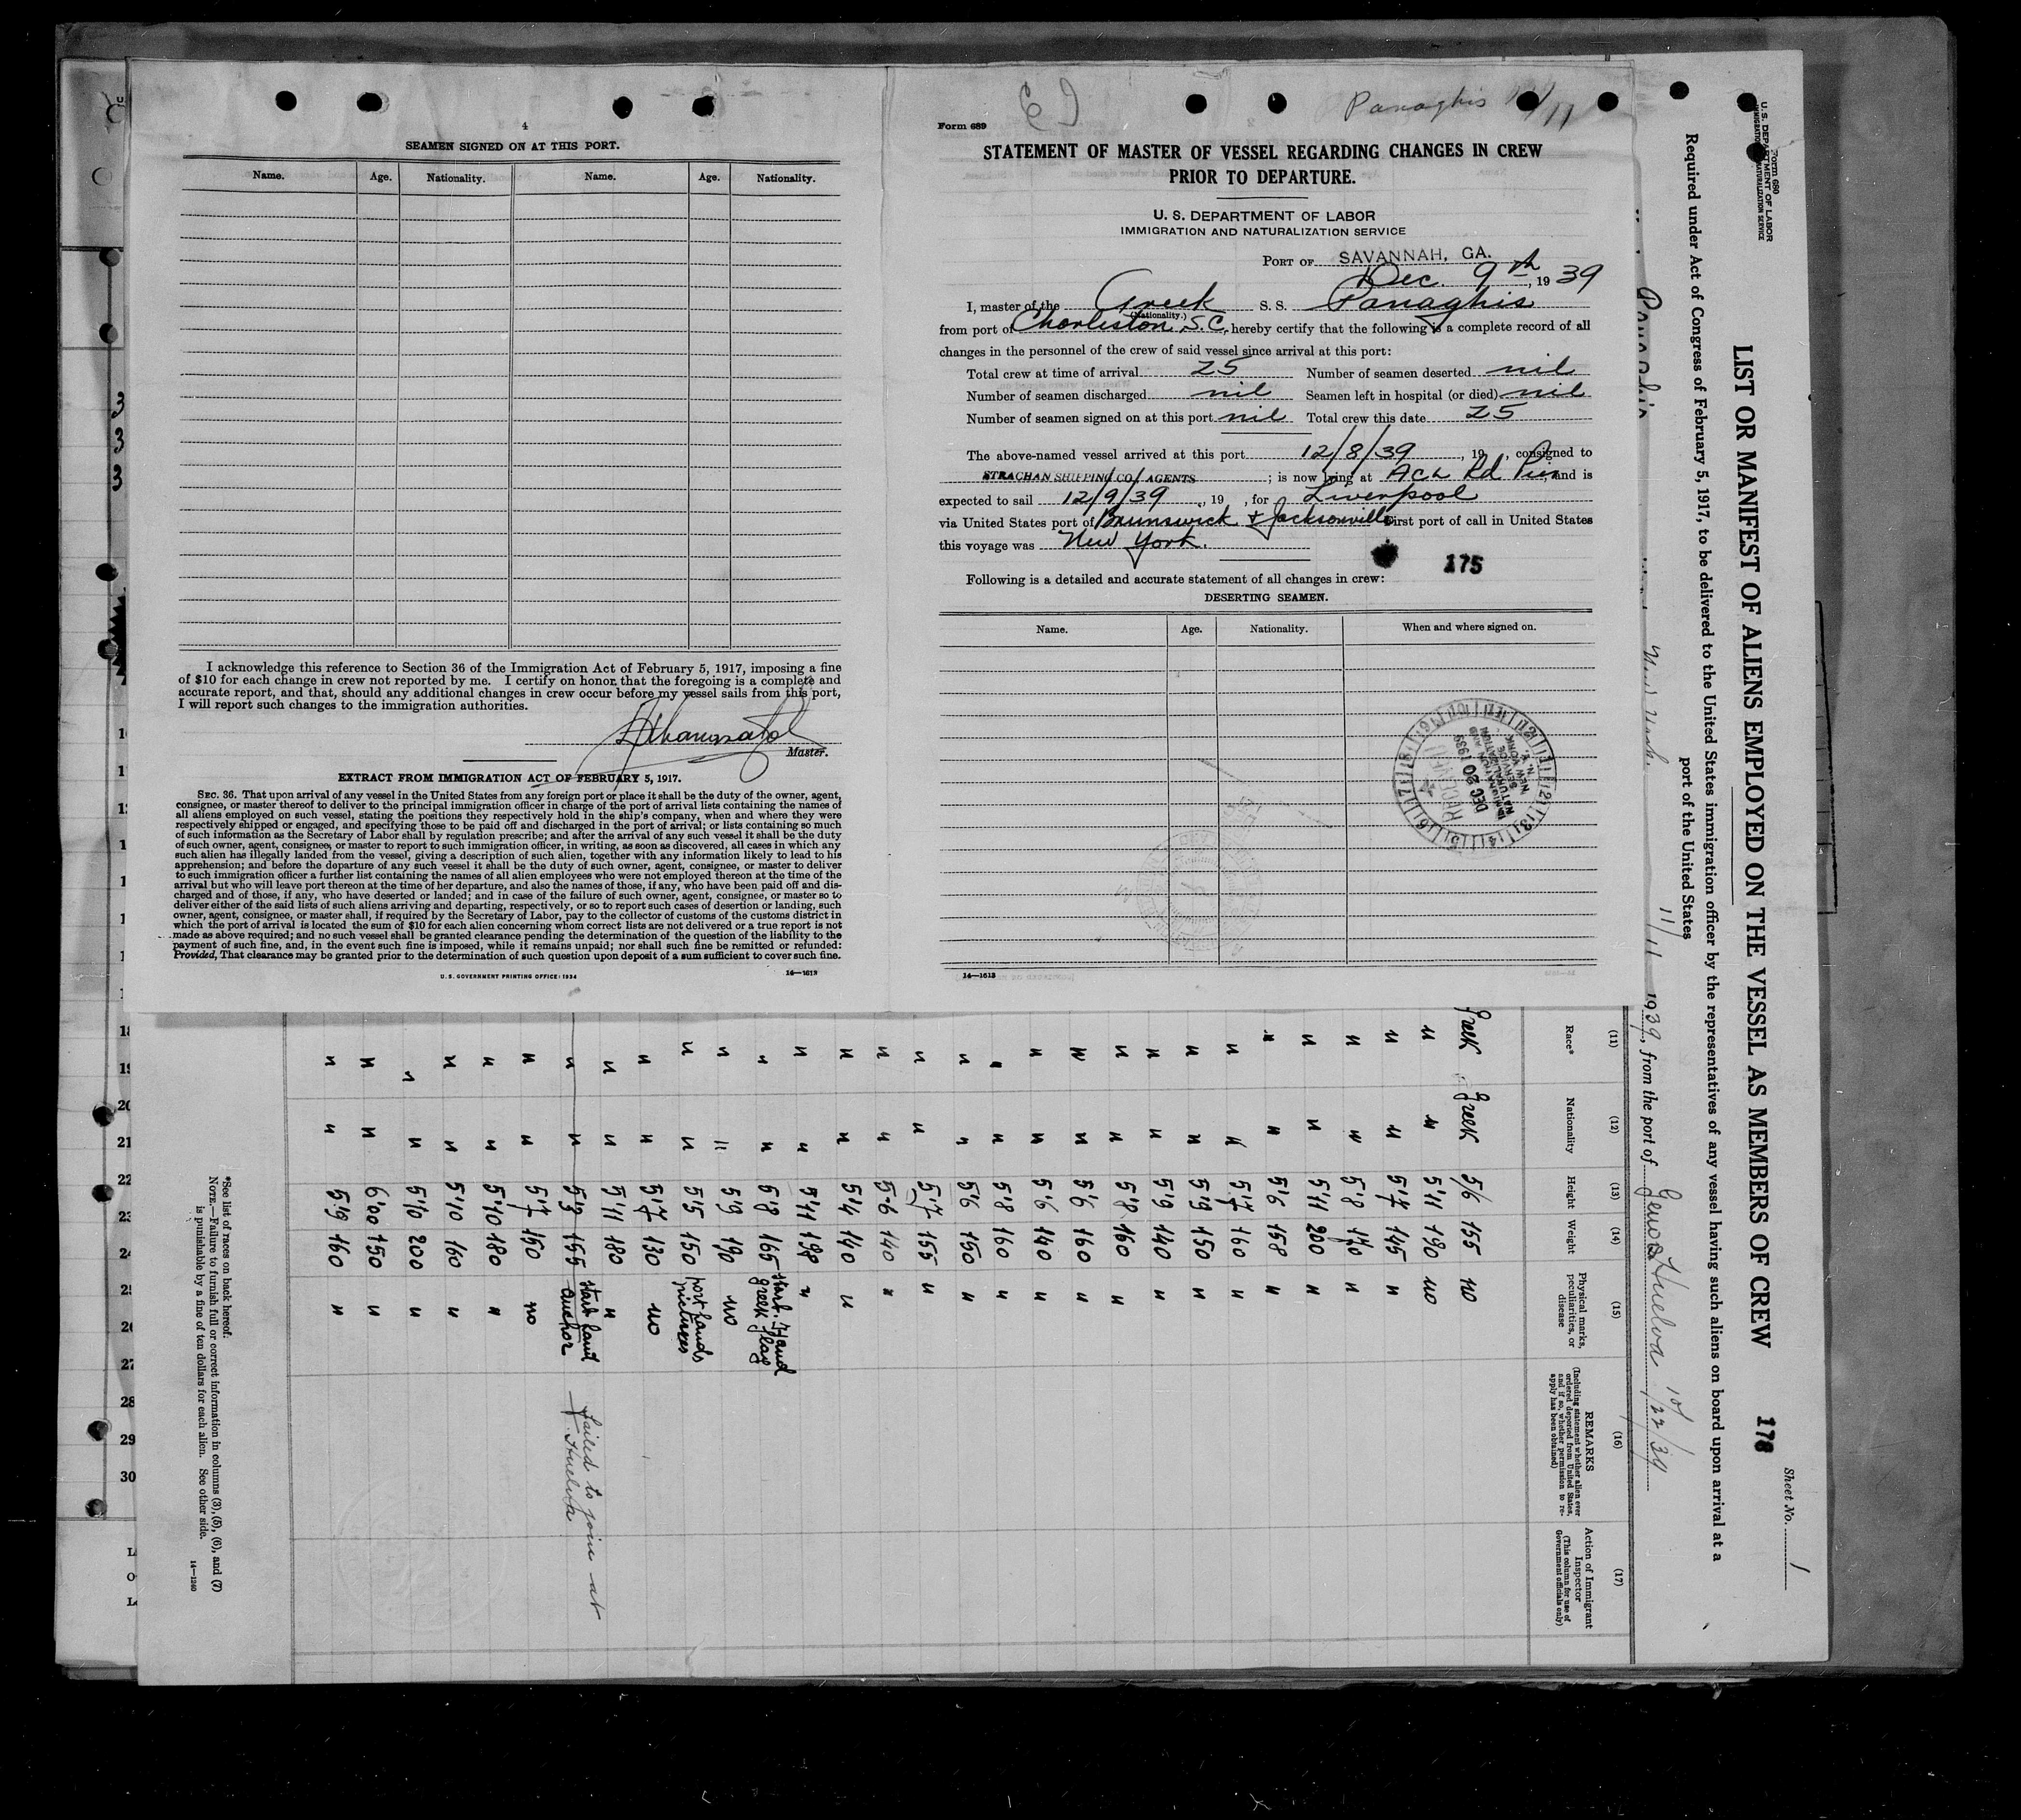 4
SEAMEN SIGNED ON AT THIS PORT.
Name. Age. Nationality. Name. Age. Nationality.
I acknowledge this reference to Section 36 of the Immigration Act of February 5, 1917, imposing a fine
of $10 for each change in crew not reported by me. I certify on honor that the foregoing is a complete and
accurate report, and that, should any additional changes in crew occur before my vessel sails from this port,
I will report such changes to the immigration authorities.
Master.
EXTRACT FROM IMMIGRATION ACT OF FEBRUARY 5, 1917.
SEC. 36. That upon arrival of any vessel in the United States from any foreign port or place it shall be the duty of the owner, agent,
consignee, or master thereof to deliver to the principal immigration officer in charge of the port of arrival lists containing the names of
all aliens employed on such vessel, stating the positions they respectively hold in the ship's company, when and where they were
respectively shipped or engaged, and specifying those to be paid off and discharged in the port of arrival; or lists containing so much
of such information as the Secretary of Labor shall by regulation prescribe; and after the arrival of any such vessel it shall be the duty
of such owner, agent, consignee, or master to report to such immigration officer, in writing, as soon as discovered, all cases in which any
such alien has illegally landed from the vessel, giving a description of such alien, together with any information likely to lead to his
apprehension; and before the departure of any such vessel it shall be the duty of such owner, agent, consignee, or master to deliver
to such immigration officer a further list containing the names of all alien employees who were not employed thereon at the time of the
arrival but who will leave port thereon at the time of her departure, and also the names of those, if any, who have been paid off and dis-
charged and of those, if any, who have deserted or landed; and in case of the failure of such owner, agent, consignee, or master so to
deliver either of the said lists of such aliens arriving and departing, respectively, or so to report such cases of desertion or landing, such
owner, agent, consignee, or master shall, if required by the Secretary of Labor, pay to the collector of customs of the customs district in
which the port of arrival is located the sum of $10 for each alien concerning whom correct lists are not delivered or a true report is not
made as above required; and no such vessel shall be granted clearance pending the determination of the question of the liability to the
payment of such fine, and, in the event such fine is imposed, while it remains unpaid; nor shall such fine be remitted or refunded:
Provided, That clearance may be granted prior to the determination of such question upon deposit of a sum sufficient to cover such fine.
U. S. GOVERNMENT PRINTING OFFICE: 1934 14—1613
Panaghis
Form 689
STATEMENT OF MASTER OF VESSEL REGARDING CHANGES IN CREW
PRIOR TO DEPARTURE.
U. S. DEPARTMENT OF LABOR
IMMIGRATION AND NATURALIZATION SERVICE
PORT OF SAVANNAH, GA.
Dec. 9th, 1939
I, master of the Greek S. S. Panaghis
(Nationality.)
from port of Charleston, S.C., hereby certify that the following is a complete record of all
changes in the personnel of the crew of said vessel since arrival at this port:
Total crew at time of arrival 25 Number of seamen deserted nil
Number of seamen discharged nil Seamen left in hospital (or died) nil
Number of seamen signed on at this port nil Total crew this date 25
The above-named vessel arrived at this port 12/8/39, 19 , consigned to
STRACHAN SHIPPING CO/ AGENTS; is now lying at ACL Rd Pier, and is
expected to sail 12/9/39, 19 , for Liverpool
via United States port of Brunswick & Jacksonville First port of call in United States
this voyage was New York.
175
Following is a detailed and accurate statement of all changes in crew:
DESERTING SEAMEN.
Name. Age. Nationality. When and where signed on.
RECEIVED
DEC 20 1939
IMMIGRATION AND
NATURALIZATION
SERVICE
NEW YORK
N. Y.
14—1613
Form 680
U. S. DEPARTMENT OF LABOR
IMMIGRATION AND NATURALIZATION SERVICE
Sheet No. 1
LIST OR MANIFEST OF ALIENS EMPLOYED ON THE VESSEL AS MEMBERS OF CREW 178
Required under Act of Congress of February 5, 1917, to be delivered to the United States immigration officer by the representatives of any vessel having such aliens on board upon arrival at a
port of the United States
11/11 1939, from the port of Genoa Huelva 10/22/39
(11) (12) (13) (14) (15) (16) (17)
Race* Nationality Height Weight Physical marks, peculiarities, or disease REMARKS (Including statement whether alien ever ordered deported from United States, and if so, whether permission to re-apply has been obtained) Action of Immigrant Inspector (This column for use of Government officials only)
Greek Greek 5/6 155 no
" " 5'11 190 no
" " 5'7 145 "
" " 5'8 170 "
" " 5'11 200 "
" " 5'6 158 "
" " 5'7 160 "
" " 5'9 150 "
" " 5'9 140 "
" " 5'8 160 "
" " 5'6 160 "
" " 5'6 140 "
" " 5'8 160 "
" " 5'6 150 "
" " 5'7 155 "
" " 5-6 140 "
" " 5'4 140 "
" " 5'11 198 "
" " 5'8 165 start. Hand greek flag
" " 5'9 190 no
" " 5'5 150 port hands pictures
" " 5'7 130 no
" " 5'11 180 "
" " 5'3 155 start hand anchor Failed to join at Huelva
" " 5'7 150 no
" " 5'10 180 "
" " 5'10 160 "
" " 5'10 200 "
" " 6'00 150 "
" " 5'9 160 "
*See list of races on back hereof.
NOTE.—Failure to furnish full or correct information in columns (3), (5), (6), and (7)
is punishable by a fine of ten dollars for each alien. See other side.
14—1240
3
3
3
18
19
20
21
22
23
24
25
26
27
28
29
30